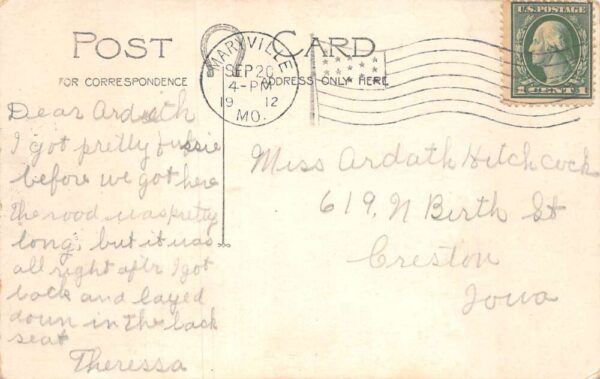 POST CARD
FOR CORRESPONDENCE
ADDRESS ONLY HERE
MARYVILLE
SEP 20
4-PM
19 12
MO.
U.S. POSTAGE
1 CENT 1
Dear Ardath
I got pretty fussie
before we got here
The rood was pretty
long, but it was
all right aftr I got
back and layed
down in the back
seat
Theressa
Miss Ardath Hitchcock
619, N Birth St
Creston
Iowa